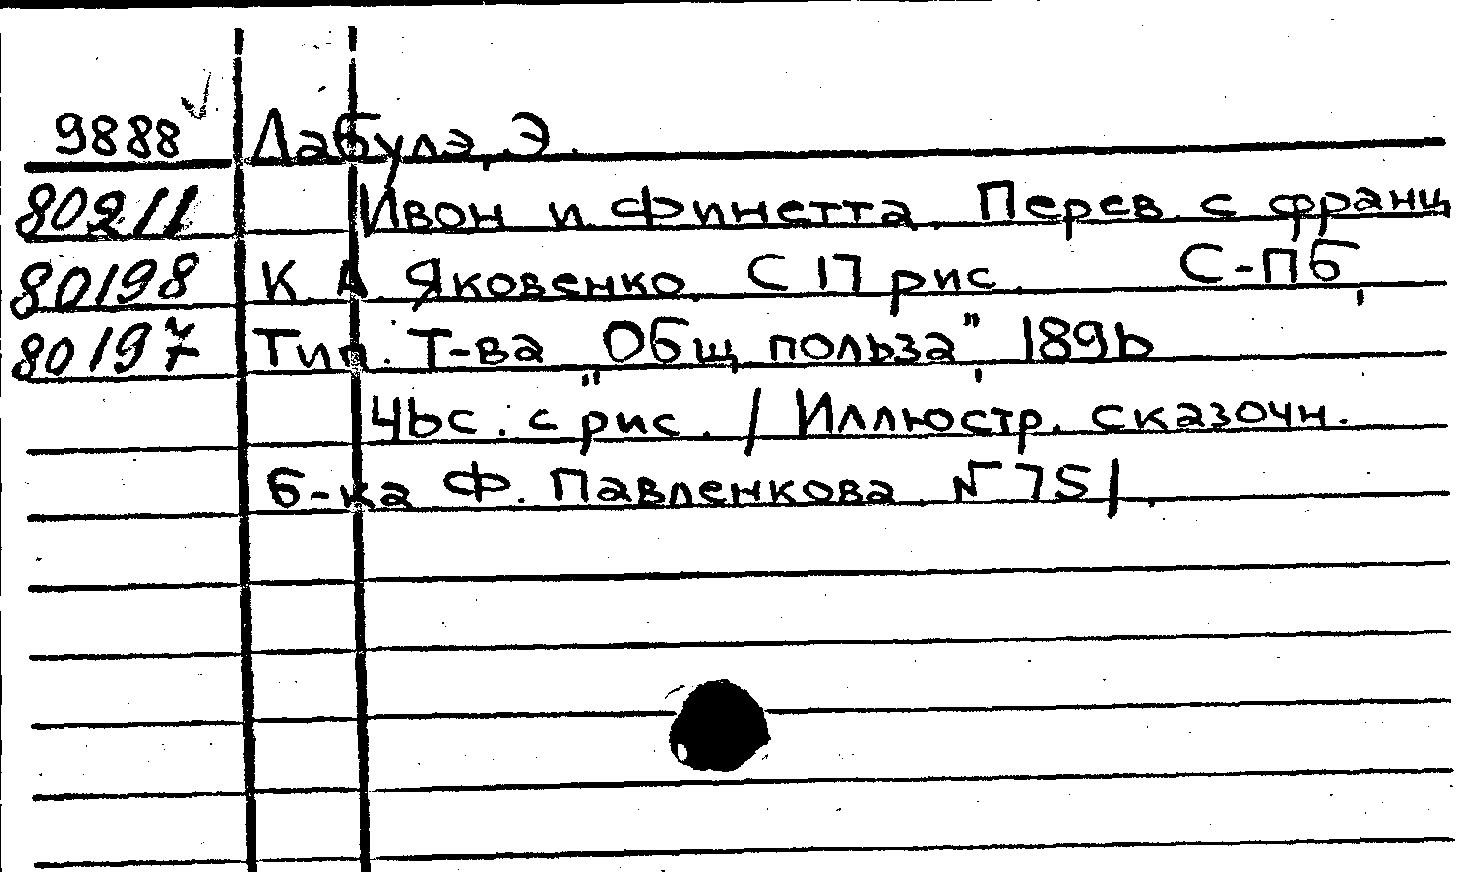 9888 Лабулэ, Э.
80211 Ивон и Финетта. Перев. с франц
80198 К. А. Яковенко. С 17 рис. С-Пб,
80197 Тип. Т-ва "Общ польза", 1896
46с. с рис. / Иллюстр. сказочн.
б-ка Ф. Павленкова. № 75/.